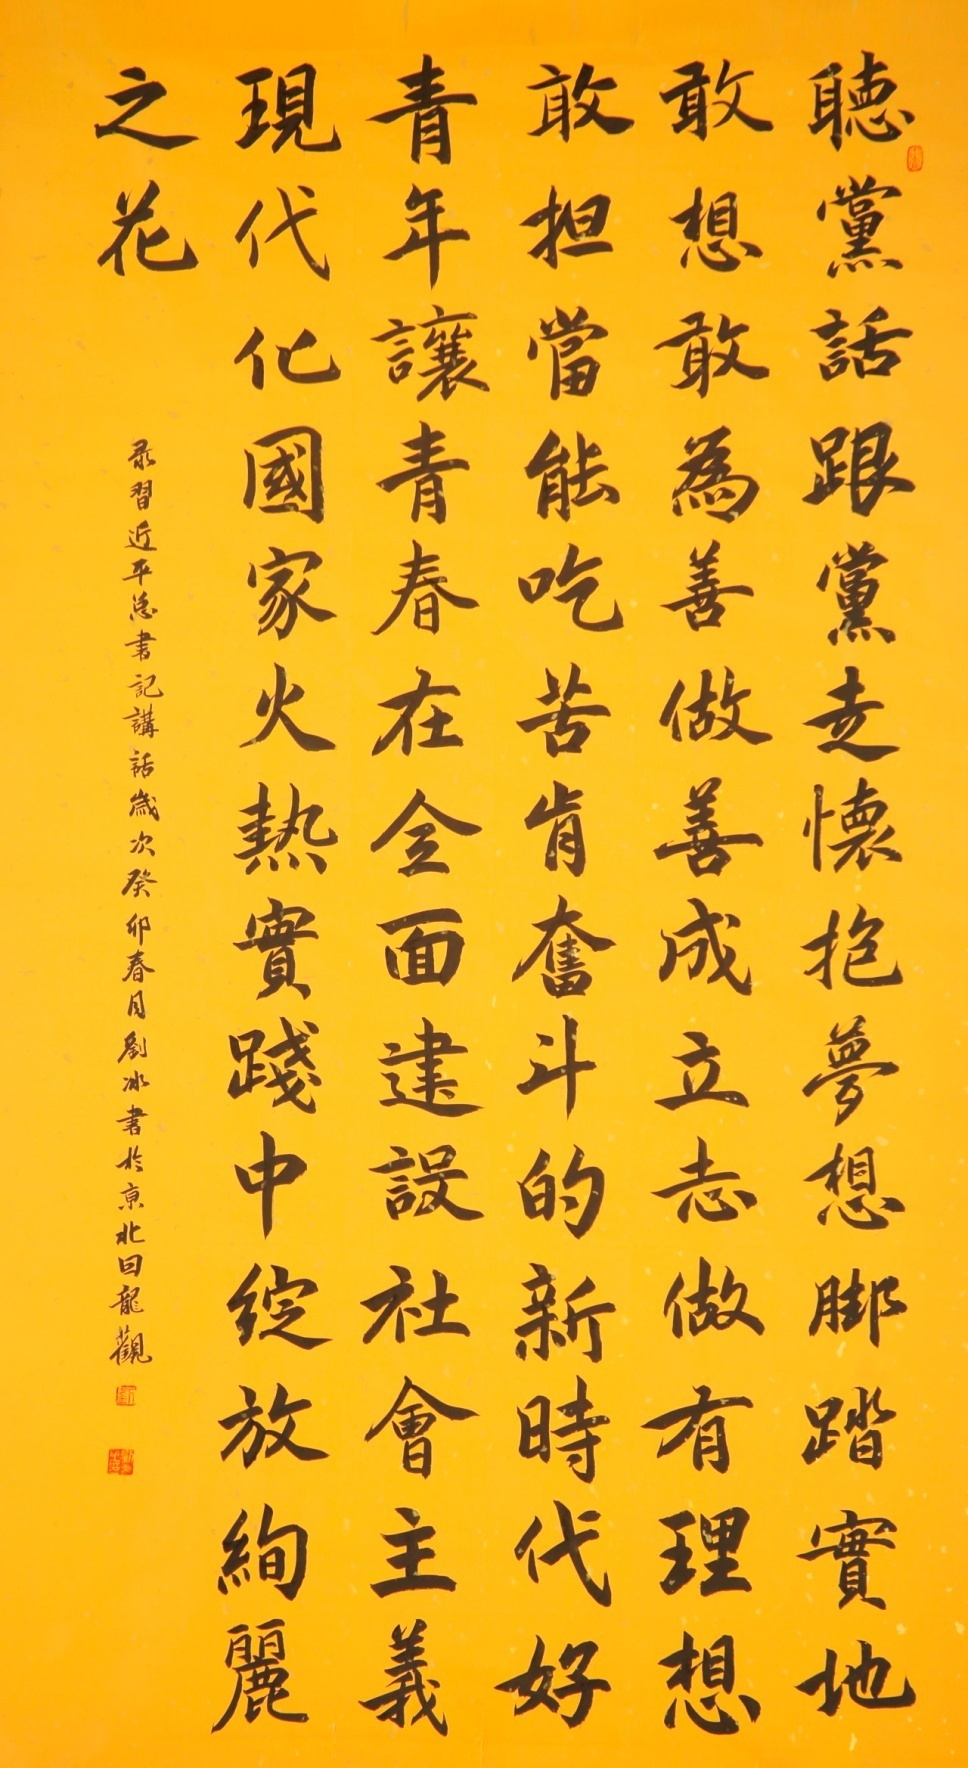 聽黨話跟黨走懷抱夢想脚踏實地
敢想敢為善做善成立志做有理想
敢担當能吃苦肯奮斗的新時代好
青年讓青春在全面建設社會主義
現代化國家火熱實踐中綻放絢麗
之花
录習近平总書記講話歲次癸卯春月劉冰書於京北回龍觀